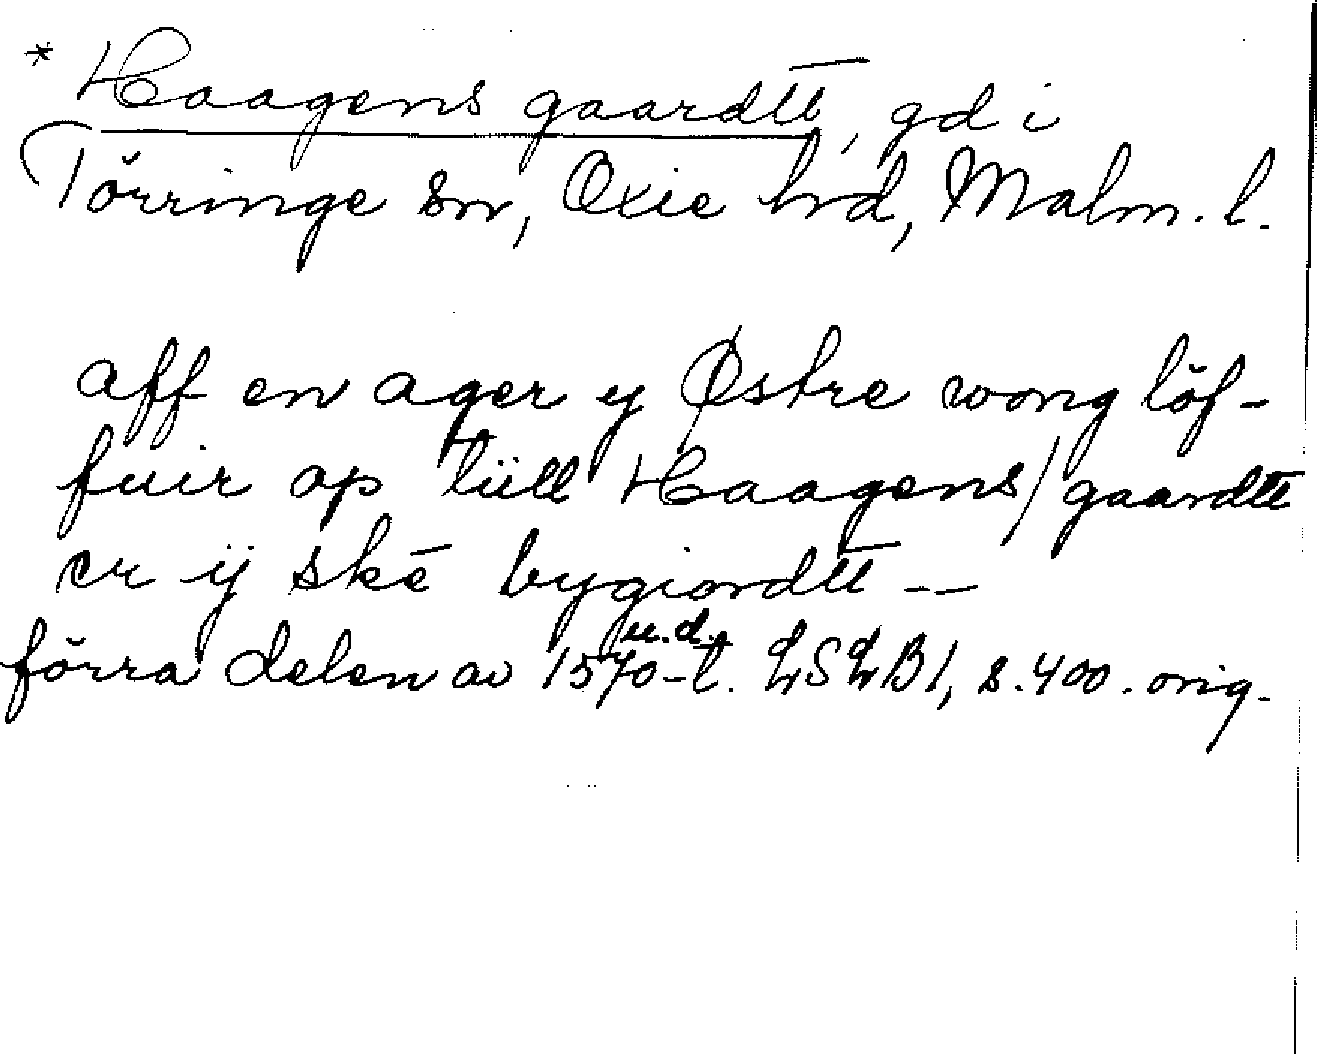 * Haagens gaardtt, gd i
Törringe sn, Oxie hrd, Malm. l.
aff en ager y Østre wong löf-
fuir op tüll Haagens/gaardtt
er ij skē bygiordtt --
u.d.
förra delen av 1570-t. LSLB1, s. 400. orig.